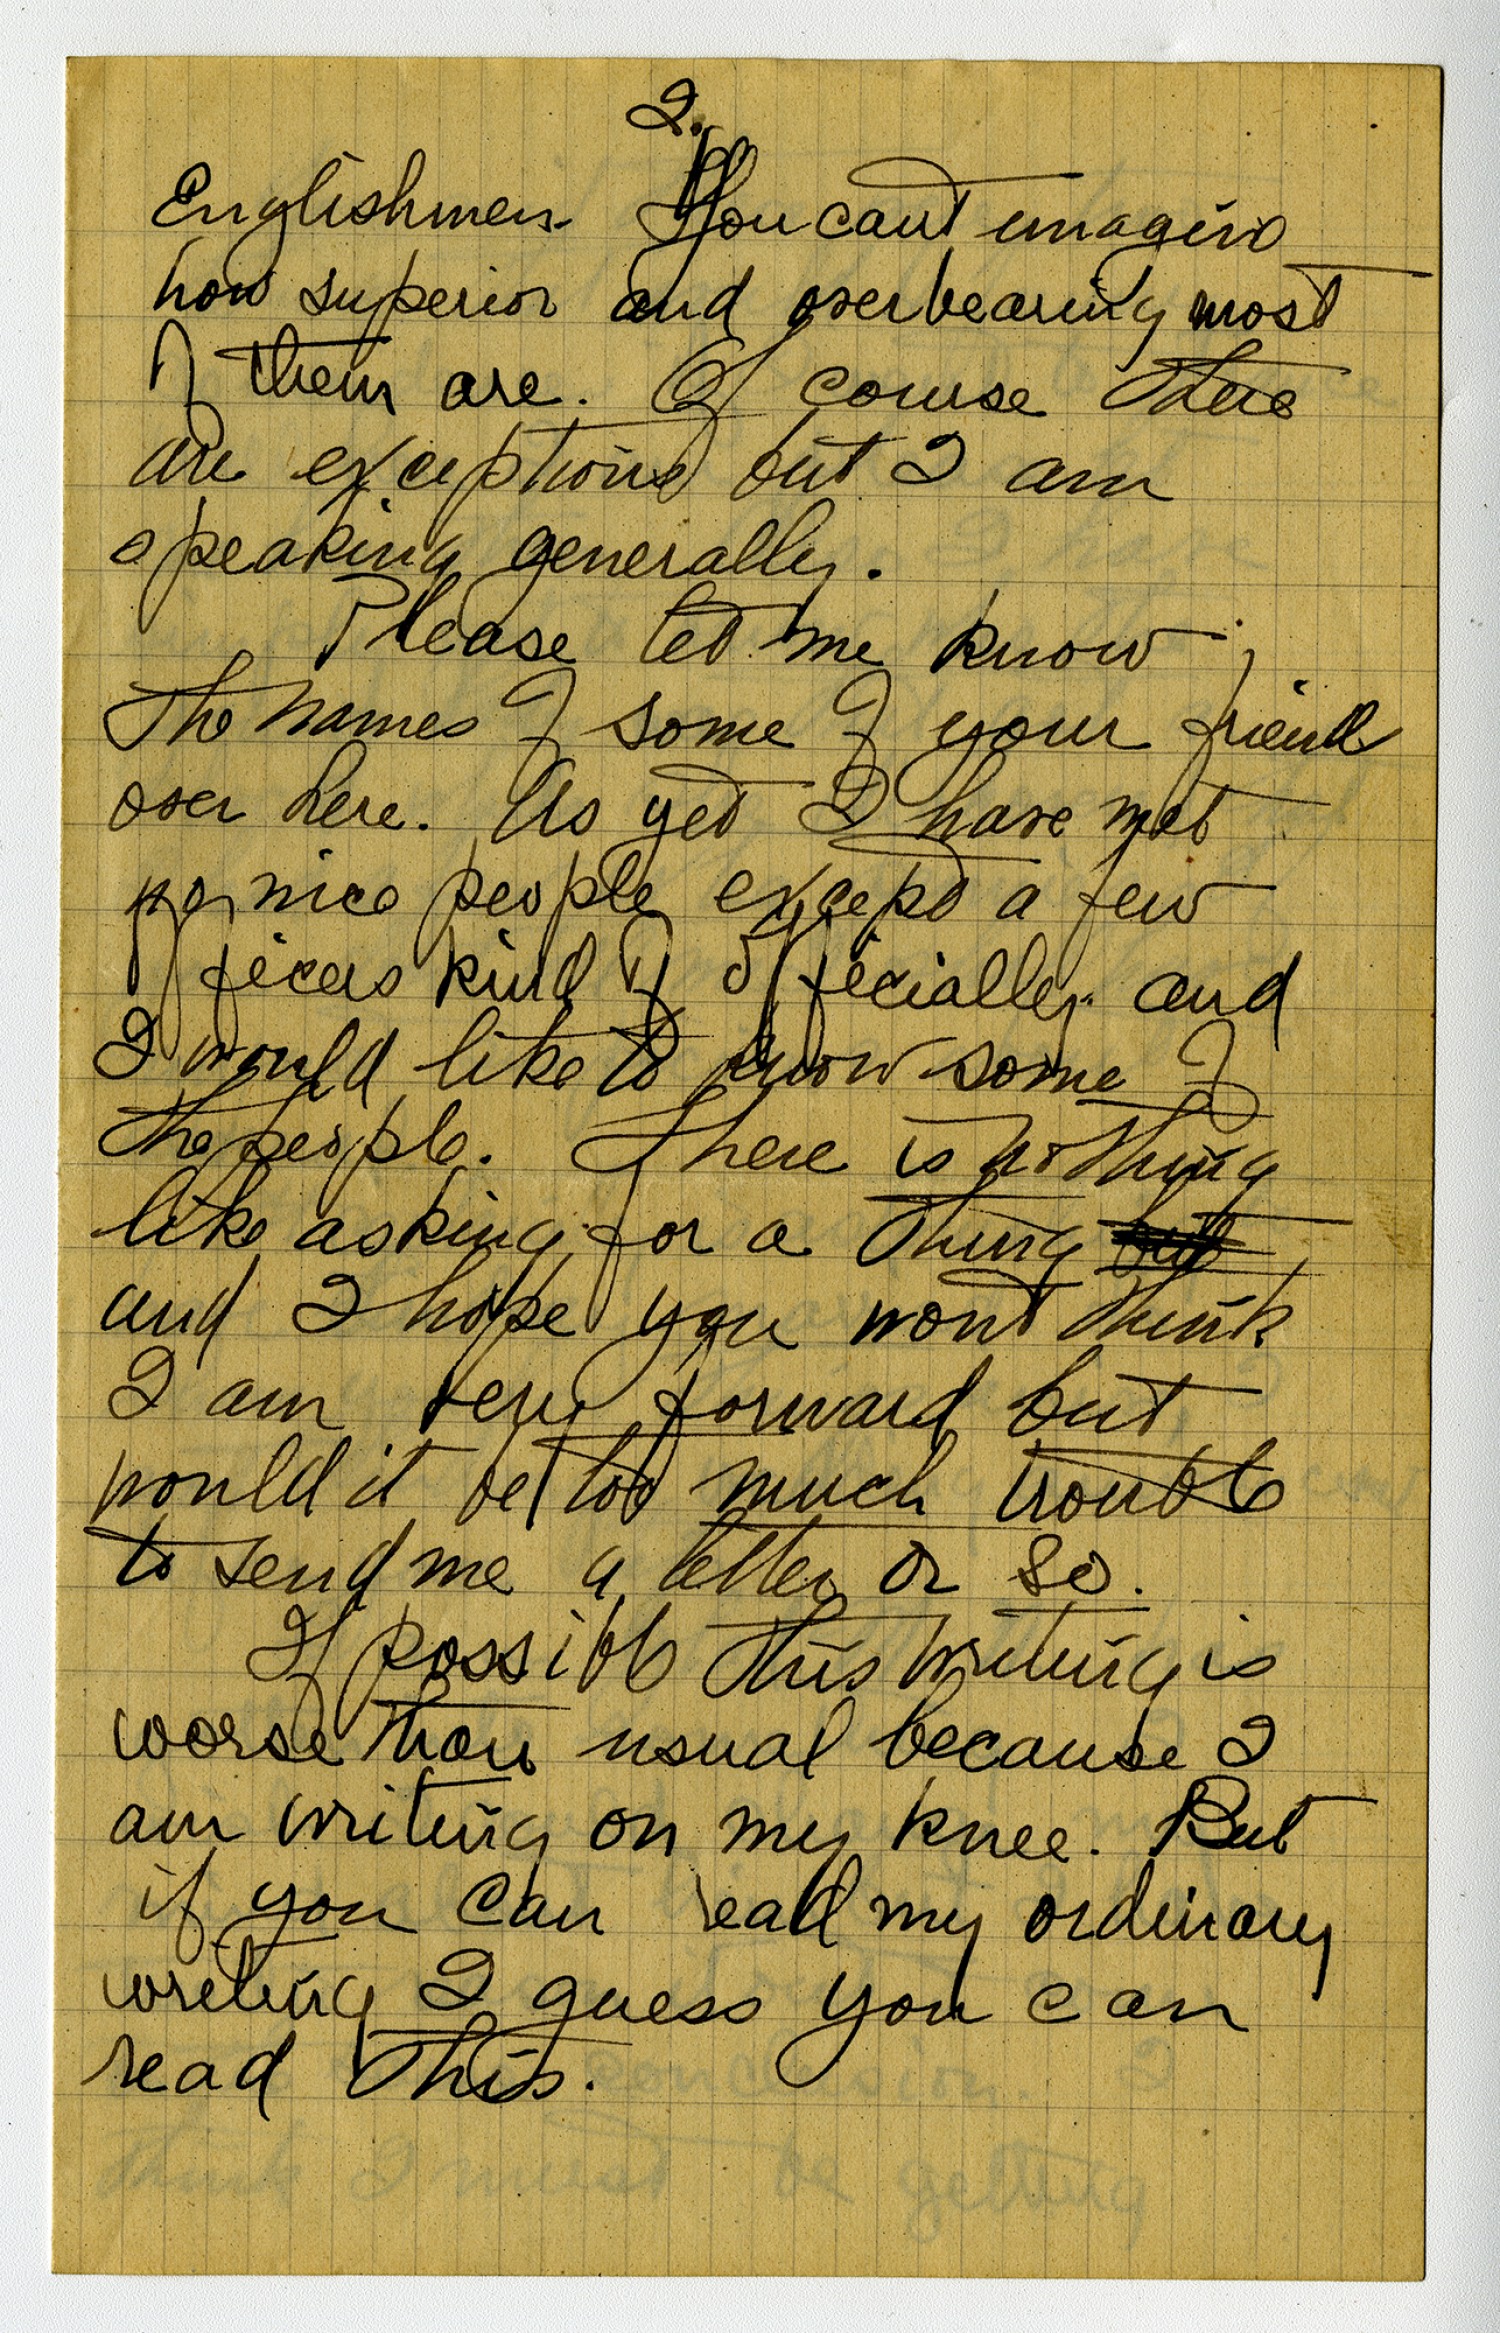 2.
Englishmen. You cant imagine
how superior and overbearing most
of them are. Of course there
are exceptions but I am
speaking generally.
Please let me know
the names of some of your friends
over here. As yet I have met
no nice people except a few
officers kind of officially and
I would like to know some of
the people. There is nothing
like asking for a thing
and I hope you wont think
I am very forward but
would it be too much trouble
to send me a letter or so.
If possible this writing is
worse than usual because I
am writing on my knee. But
if you can read my ordinary
writing I guess you can
read this.